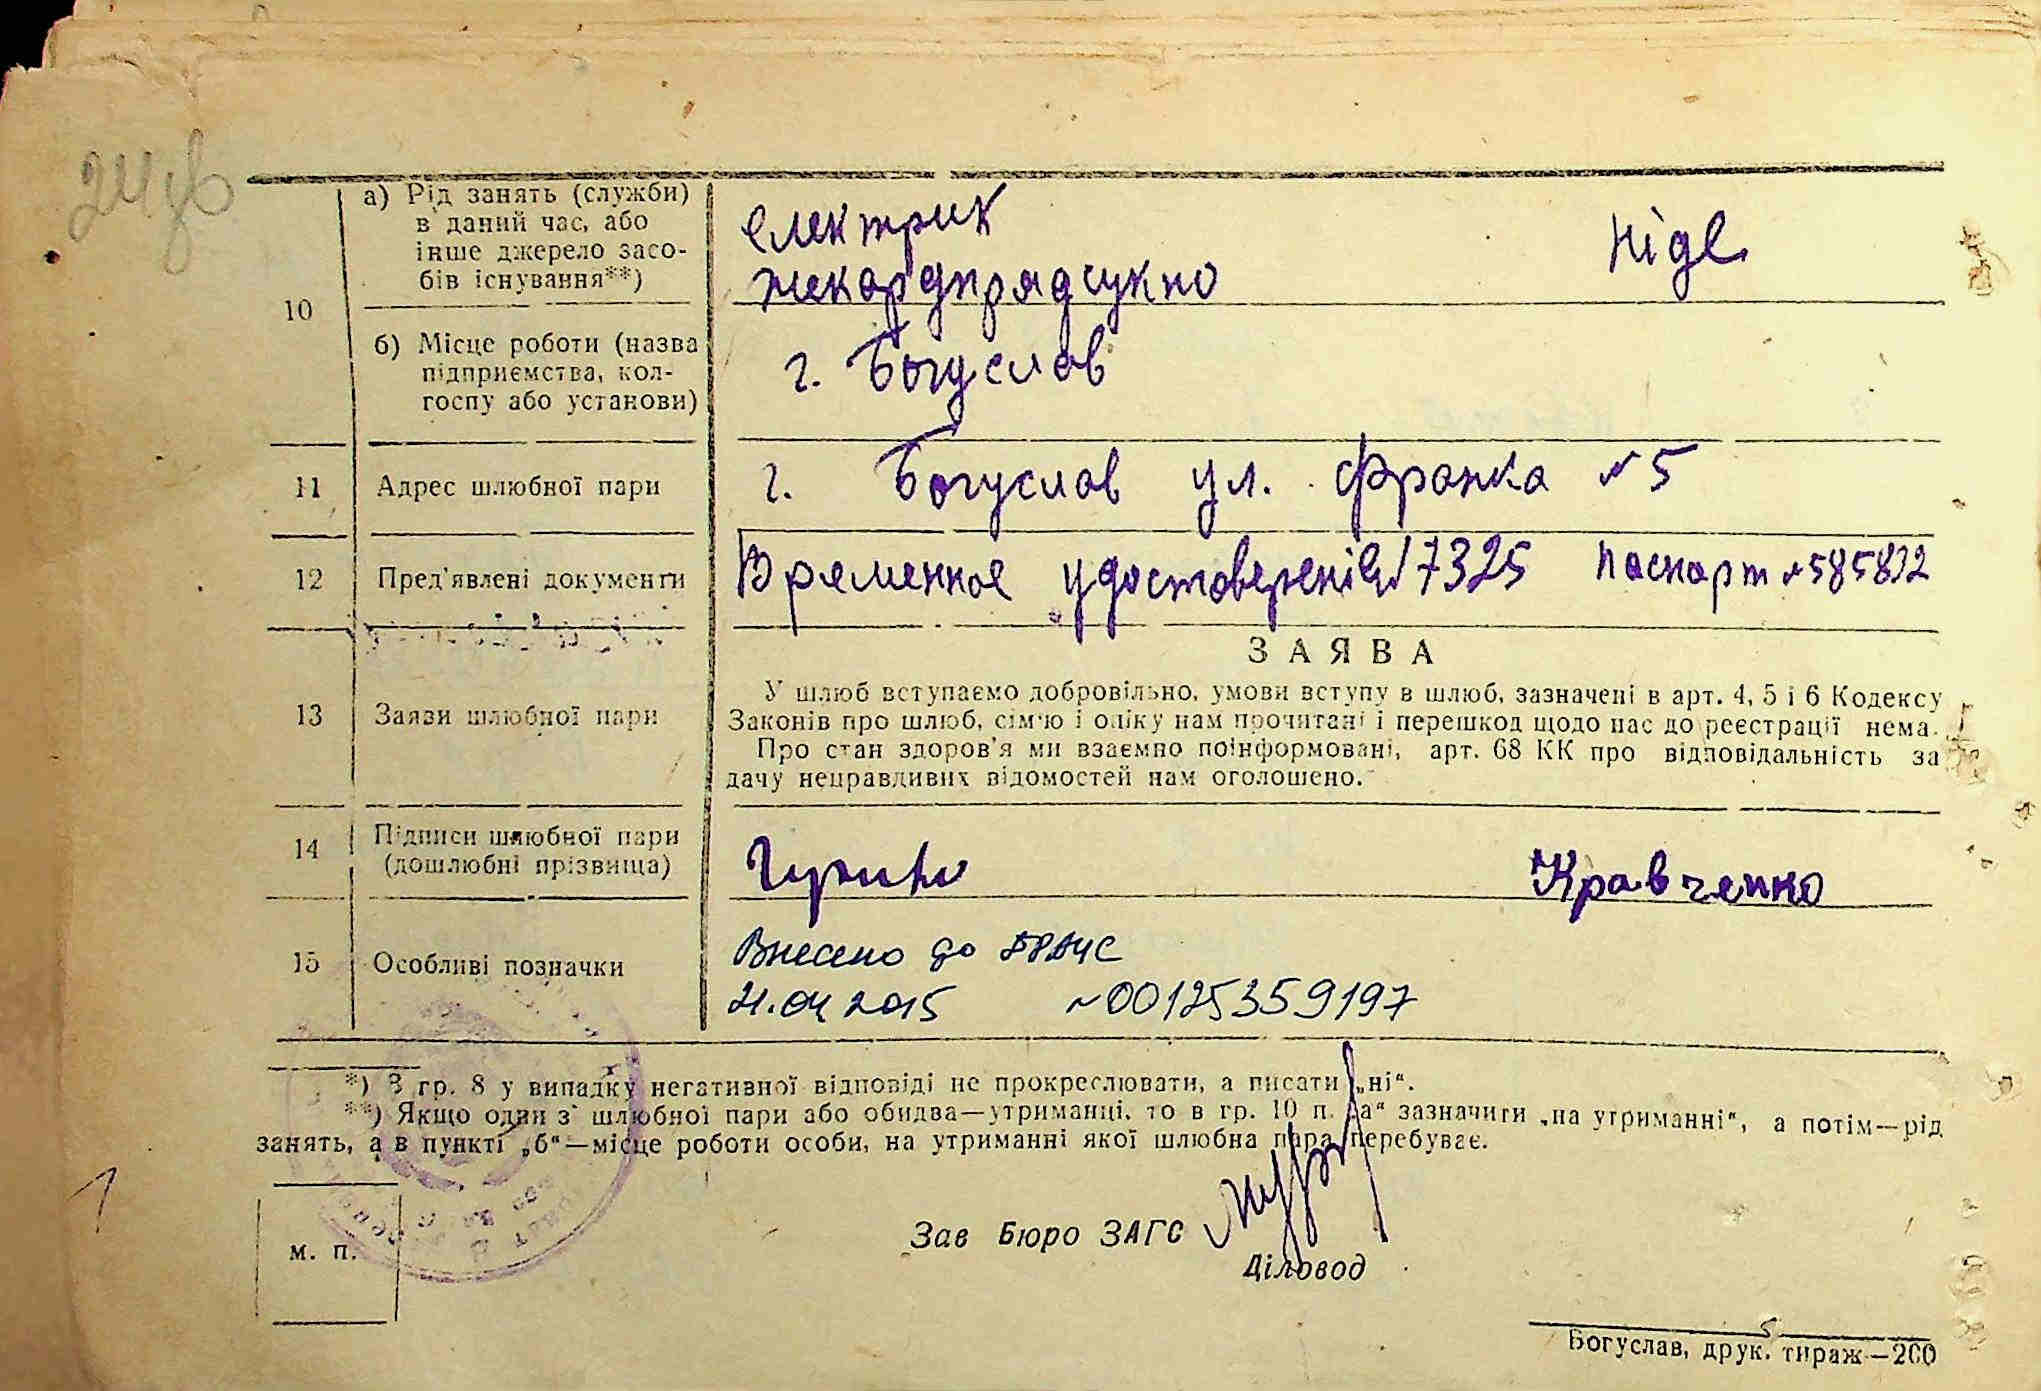 24зв
10
а) Рід занять (служби)
в даний час, або
інше джерело засо-
бів існування**)
електрик
жекардпрядсукно
Ніде
б) Місце роботи (назва
підприємства, кол-
госпу або установи)
г. Богуслав
11
Адрес шлюбної пари
г. Богуслав ул. Франка №5
12
Пред'явлені документи
Временное удостоверение №7325 Паспорт №585812
13
Заяви шлюбної пари
ЗАЯВА
У шлюб вступаємо добровільно, умови вступу в шлюб, зазначені в арт. 4, 5 і 6 Кодексу
Законів про шлюб, сім'ю і опіку нам прочитані і перешкод щодо нас до реєстрації нема.
Про стан здоров'я ми взаємно поінформовані, арт. 68 КК про відповідальність за
дачу неправдивих відомостей нам оголошено.
14
Підписи шлюбної пари
(дошлюбні прізвища)
Кравченко
15
Особливі позначки
Внесено до ДРАЦС
21.04 2015 №00125359197
*) В гр. 8 у випадку негативної відповіді не прокреслювати, а писати „ні“.
**) Якщо один з шлюбної пари або обидва—утриманці, то в гр. 10 п. „а“ зазначити „на утриманні“, а потім—рід
занять, а в пункті „б“—місце роботи особи, на утриманні якої шлюбна пара перебуває.
1
м. п.
Зав Бюро ЗАГС
Діловод
Богуслав, друк. тираж—200